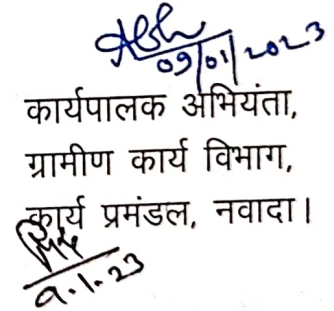 09/01/2023
कार्यपालक अभियंता,
ग्रामीण कार्य विभाग,
कार्य प्रमंडल, नवादा।
9.1.23